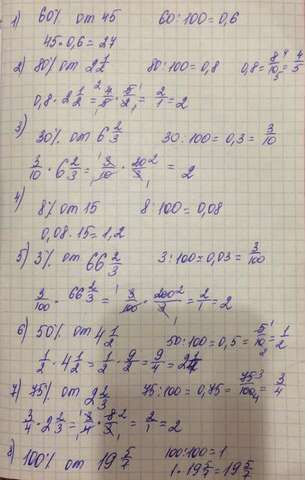 1) 60% от 45 60:100=0,6
45·0,6=27
2) 80% от 2 1/2 80:100=0,8 0,8=8/10=4/5
0,8·2 1/2=4/5·5/2=2/1=2
3) 30% от 6 2/3 30:100=0,3=3/10
3/10·6 2/3=3/10·20/3=2
4) 8% от 15 8:100=0,08
0,08·15=1,2
5) 3% от 66 2/3 3:100=0,03=3/100
3/100·66 2/3=3/100·200/3=2/1=2
6) 50% от 4 1/2 50:100=0,5=5/10=1/2
1/2·4 1/2=1/2·9/2=9/4=2 1/4
7) 75% от 2 2/3 75:100=0,75=75/100=3/4
3/4·2 2/3=3/4·8/3=2/1=2
8) 100% от 19 5/7 100:100=1
1·19 5/7=19 5/7